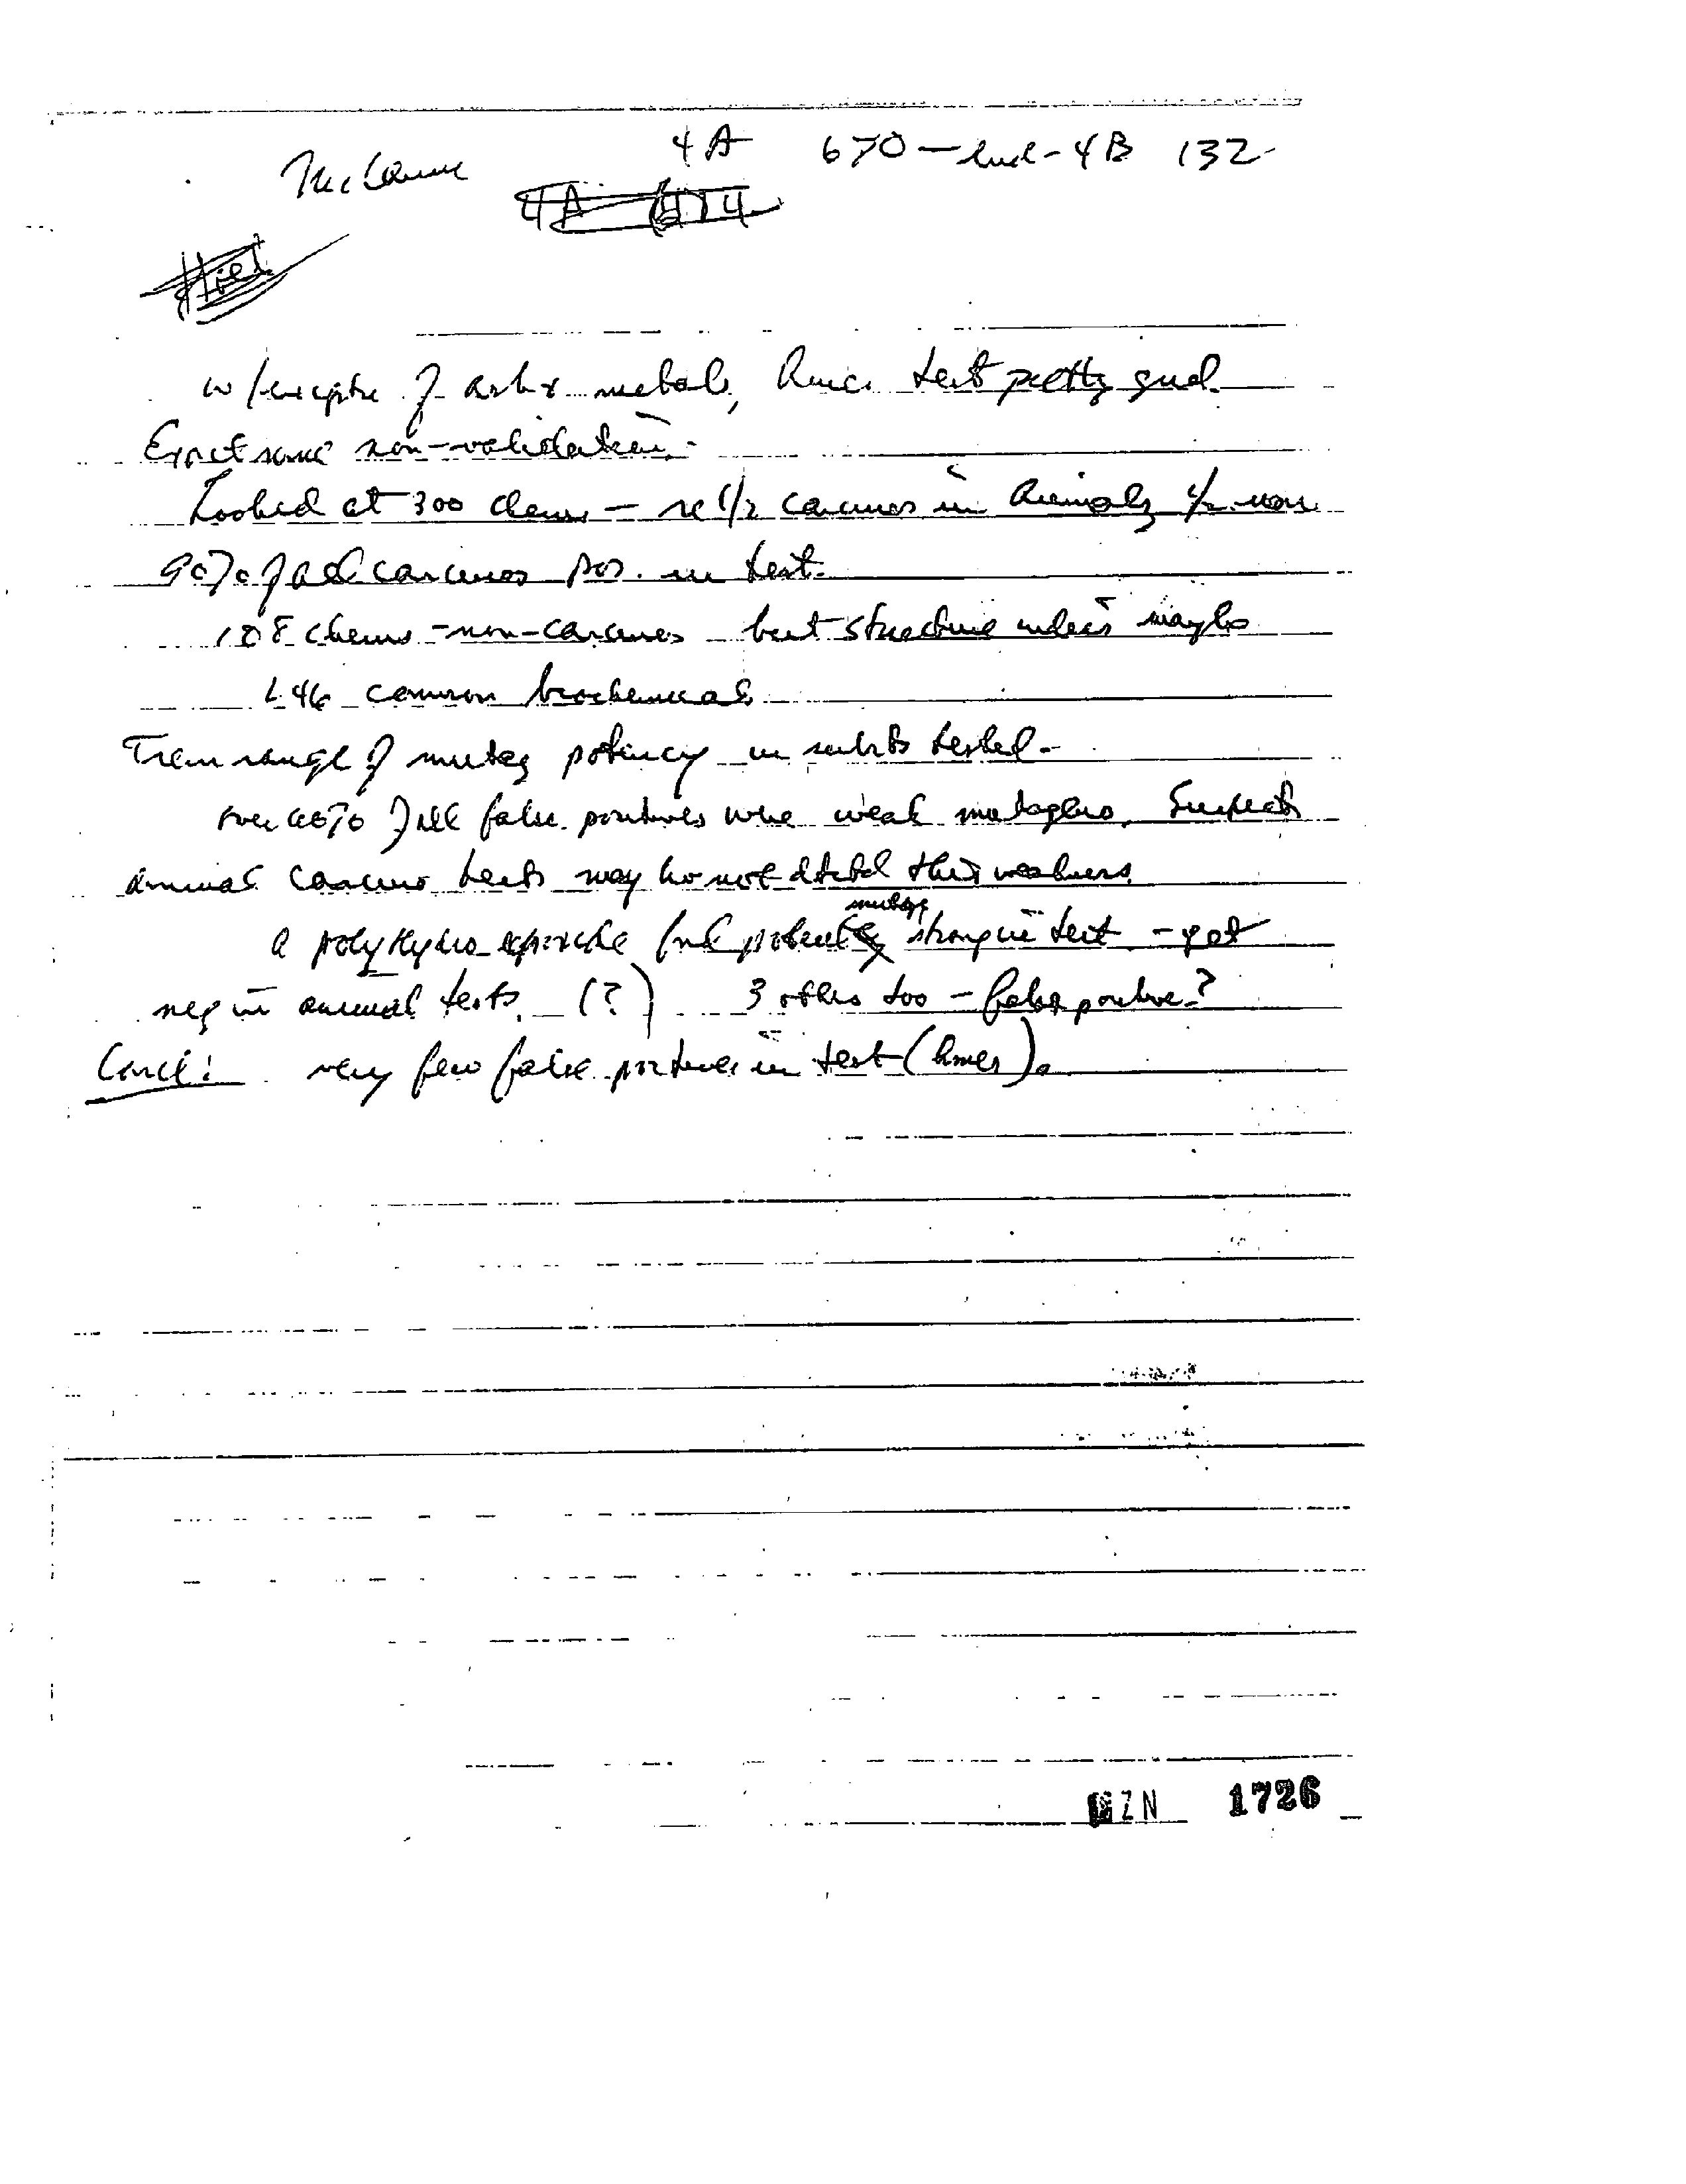 McCann 4A 670 - end - 4B 132
w/ of & metals, Ames test pretty good.
Expect some non-validation.
Looked at 300 chems - 1/2 carcinos in animals, 1/2 non
90% of all carcinos pos. in test.
108 chems - non-carcinos but structure maybe
& 46 common biochemicals
range of mutag potency in substs tested -
over 60% of all false positives were weak mutagens. Suspect
animal carcino tests may not this weakness
a epoxide mutag strong in test - yet
neg in animal tests. (?) 3 others too - false positive?
Concl: very few false positives in test (Ames).
GZN 1726